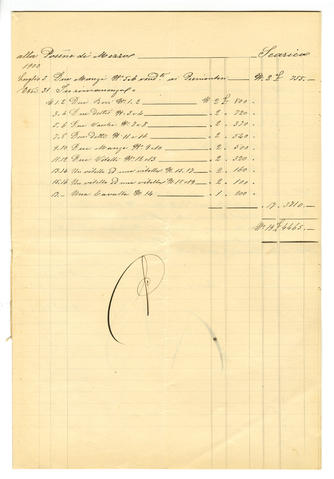 alla Posino di Mezzo Scarico
1900
Luglio 5 Due Manzi N. 5 e 6 vend.ti ai Piemontesi N. 2 £ 755.-
Dbre. 31 In rimanenza
N. 1.2 Due Bovi N. 1.2 N. 2 £ 800.-
3.4 Due detti N. 3 e 4 " 2 " 720
5.6 Due N. 7 e 8 " 2 " 570
7.8 Due detti N. 11 e 16 " 2 " 540
9.10 Due Manze N. 9.10 " 2 " 500
11.12 Due Vitelli N. 12 e 13 " 2 " 320
13.14 Un vitello ed una vitella N. 15.17 " 2 " 160
15.16 Un vitello ed una vitella N. 18 e 19 " 2 " 100
17.- Una Cavalla N. 14 " 1 " 200
17. 3910.-
N. 19 £ 4665.-